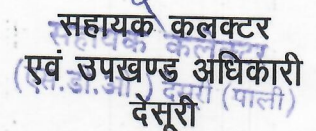 सहायक कलक्टर
एवं उपखण्ड अधिकारी
देसूरी
सहायक कलक्टर
(एस.डी.ओ.) देसूरी (पाली)